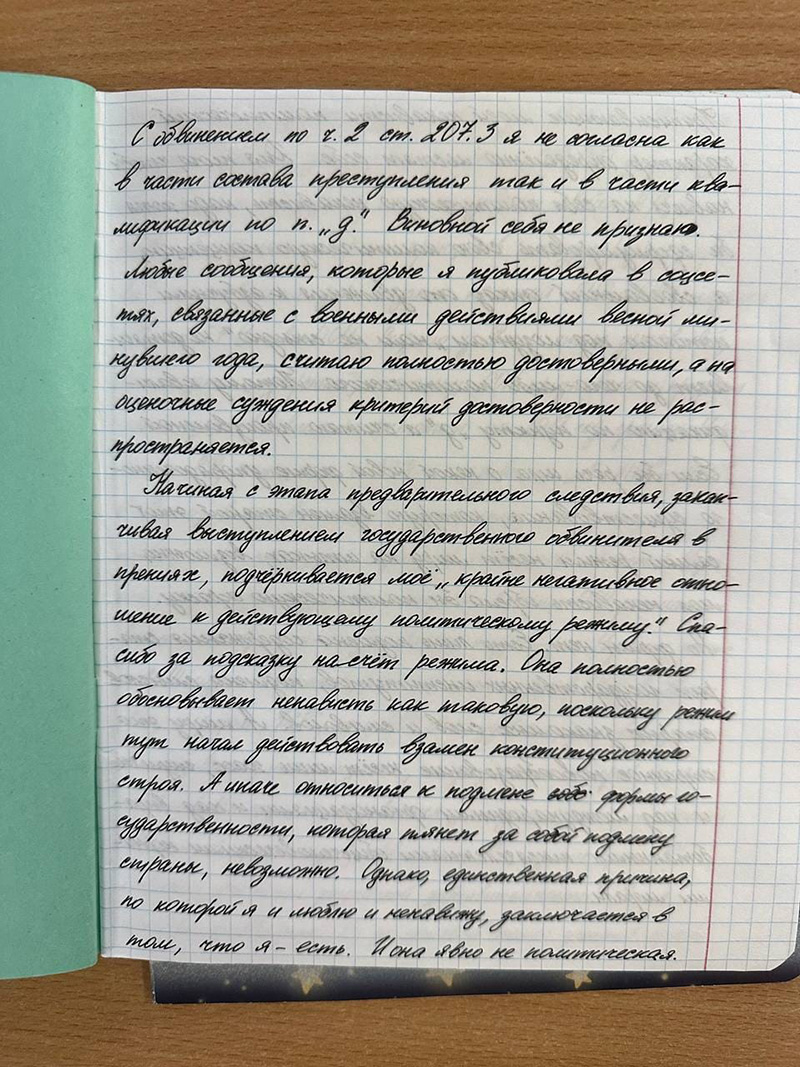 С обвинением по ч. 2 ст. 207.3 я не согласна как
в части состава преступления так и в части ква-
лификации по п. „д." Виновной себя не признаю.
Любые сообщения, которые я публиковала в соцсе-
тях, связанные с военными действиями весной ми-
нувшего года, считаю полностью достоверными, а на
оценочные суждения критерий достоверности не рас-
пространяется.
Начиная с этапа предварительного следствия, закан-
чивая выступлением государственного обвинителя в
прениях, подчёркивается моё „крайне негативное отно-
шение к действующему политическому режиму." Спа-
сибо за подсказку на счёт режима. Она полностью
обосновывает ненависть как таковую, поскольку режим
тут начал действовать взамен конституционного
строя. А иначе относиться к подмене формы го-
сударственности, которая тянет за собой подмену
страны, невозможно. Однако, единственная причина,
по которой я и люблю и ненавижу, заключается в
том, что я – есть. И она явно не политическая.